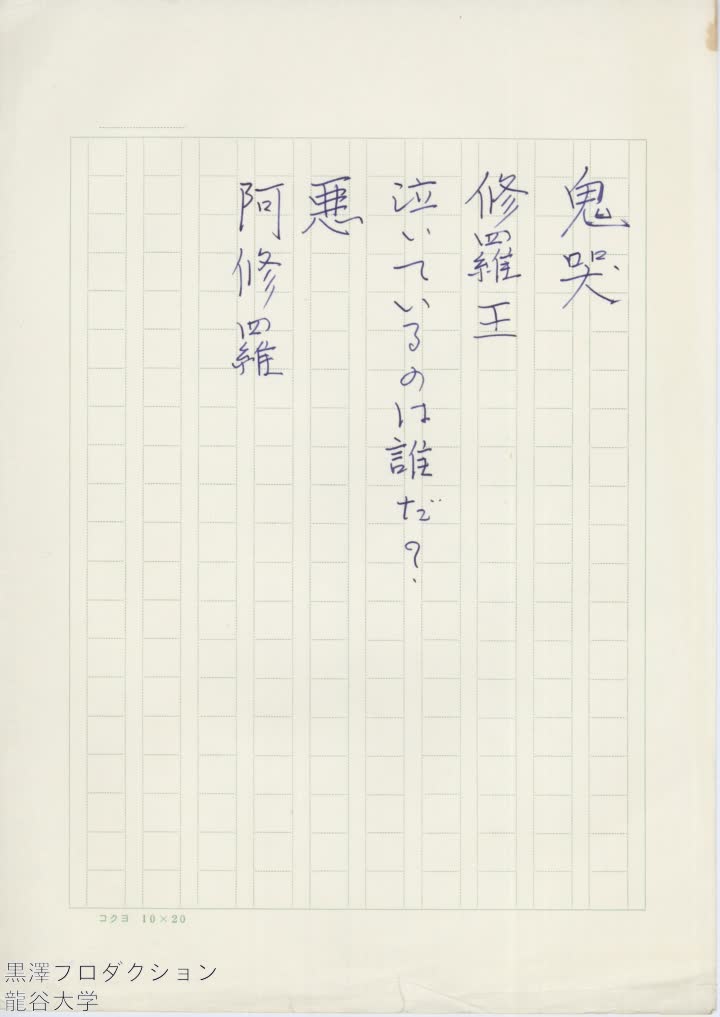 鬼哭
修羅王
泣いているのは誰だ?
悪
阿修羅
コクヨ 10×20
黒澤フロダクション
龍谷大学